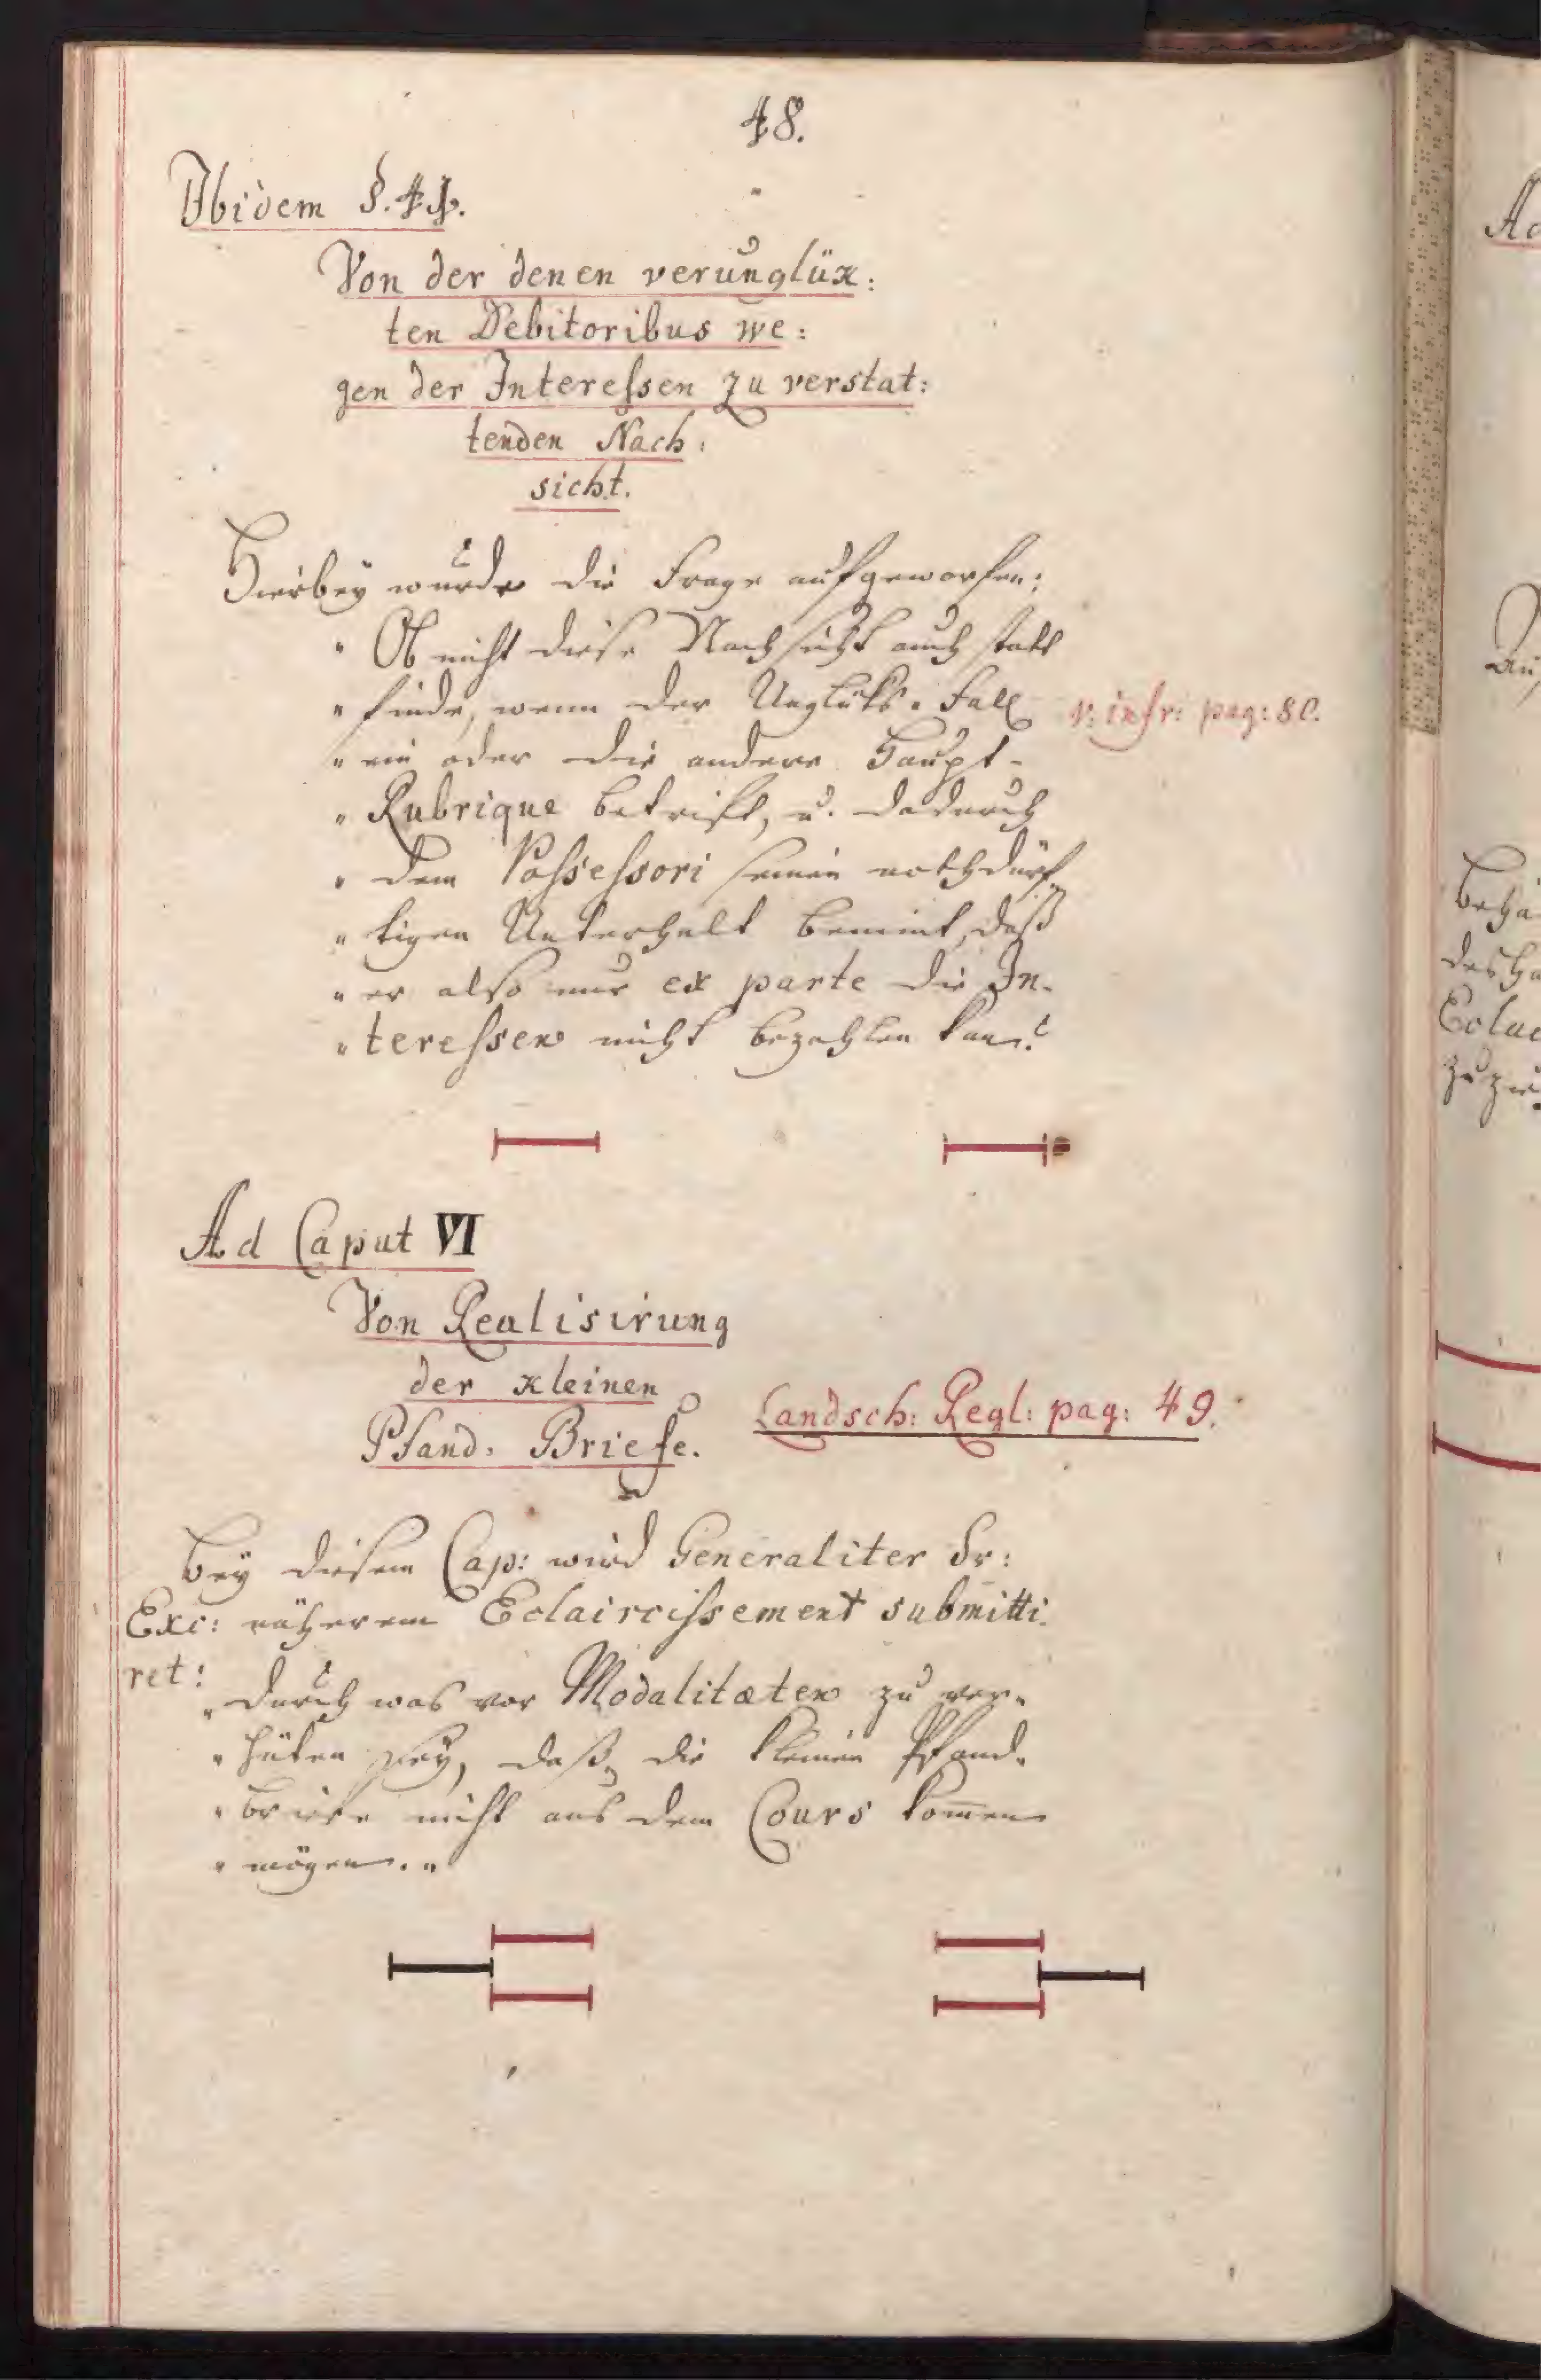 48.
Ibidem §. 41.
Von der denen verunglüx:
ten Debitoribus we:
gen der Interessen zu verstat:
tenden Nach:
sicht.
Hierbey wurde die Frage aufgeworfen:
" Ob nicht diese Nachsicht auch statt
" finde, wenn der Unglüks-Fall
v: infr: pag: 80.
" ein oder die andere Haupt-
" Rubrique betrift, u. dadurch
" dem Possessori seinen nothdürf-
" tigen Unterhalt benimt, daß
" er also nur ex parte die In-
" teressen nicht bezahlen kan?
Ad Caput VI
Von Realisirung
der kleinen
Pfand-Briefe.
Landsch: Regl: pag: 49.
Bey diesem Cap: wird Generaliter Sr:
Exc: näherem Eclaircissement submitti-
ret:
" durch was vor Modalitæten zu ver-
" hüten sey, daß die kleinen Pfand-
" briefe nicht aus dem Cours kom̄en
" mögen. "
Ad